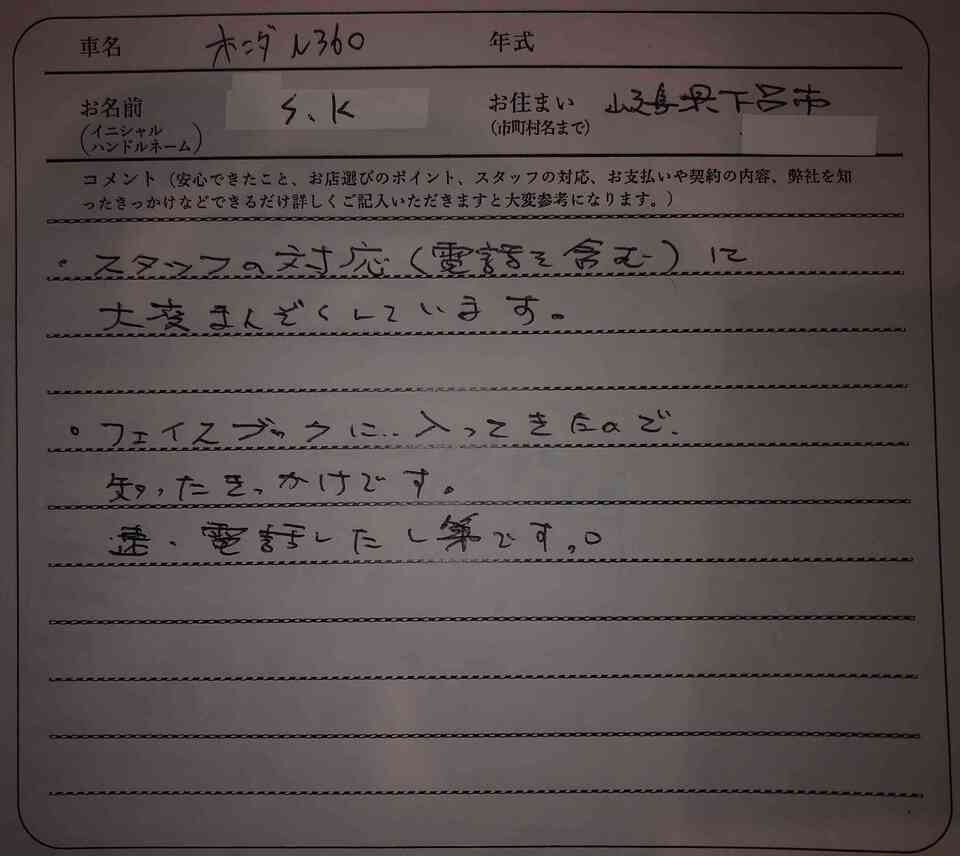 車名 ホンダ N360 年式
お名前 S.K お住まい 岐阜県下呂市
(イニシャル ハンドルネーム) (市町村名まで)
コメント（安心できたこと、お店選びのポイント、スタッフの対応、お支払いや契約の内容、弊社を知
ったきっかけなどできるだけ詳しくご記入いただきますと大変参考になります。）
・スタッフの対応(電話を含む)に
大変まんぞくしています。
・フェイスブックに..入ってきたので.
知ったきっかけです。
速、電話したし第です。